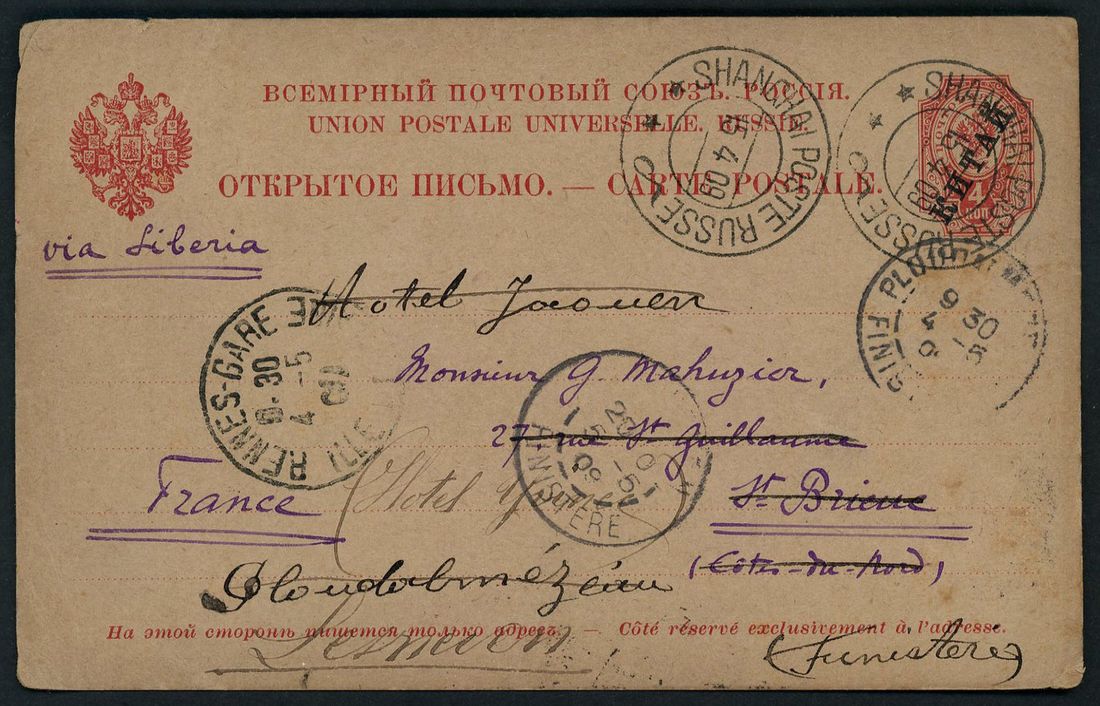 ВСЕМІРНЫЙ ПОЧТОВЫЙ СОЮЗЪ. РОССІЯ.
UNION POSTALE UNIVERSELLE. RUSSIE.
ОТКРЫТОЕ ПИСЬМО. — CARTE POSTALE.
SHANGHAI POSTE RUSSE
15 4 09
SHANGHAI POSTE RUSSE
15 4 09
КИТАЙ
4
КОП
via Siberia
Hotel Jaouen
RENNES-GARE ILLE
8-30
4-5
09
FINISTERE
9 30
Monsieur G. Mahuzier,
27, rue St Guillaume
FINISTERE
France
Hotel
St Brieuc
(Côtes-du-Nord)
Ploudalmézeau
На этой сторонѣ пишется только адресъ. — Côté réservé exclusivement à l'adresse.
Lesneven
(Finistère)